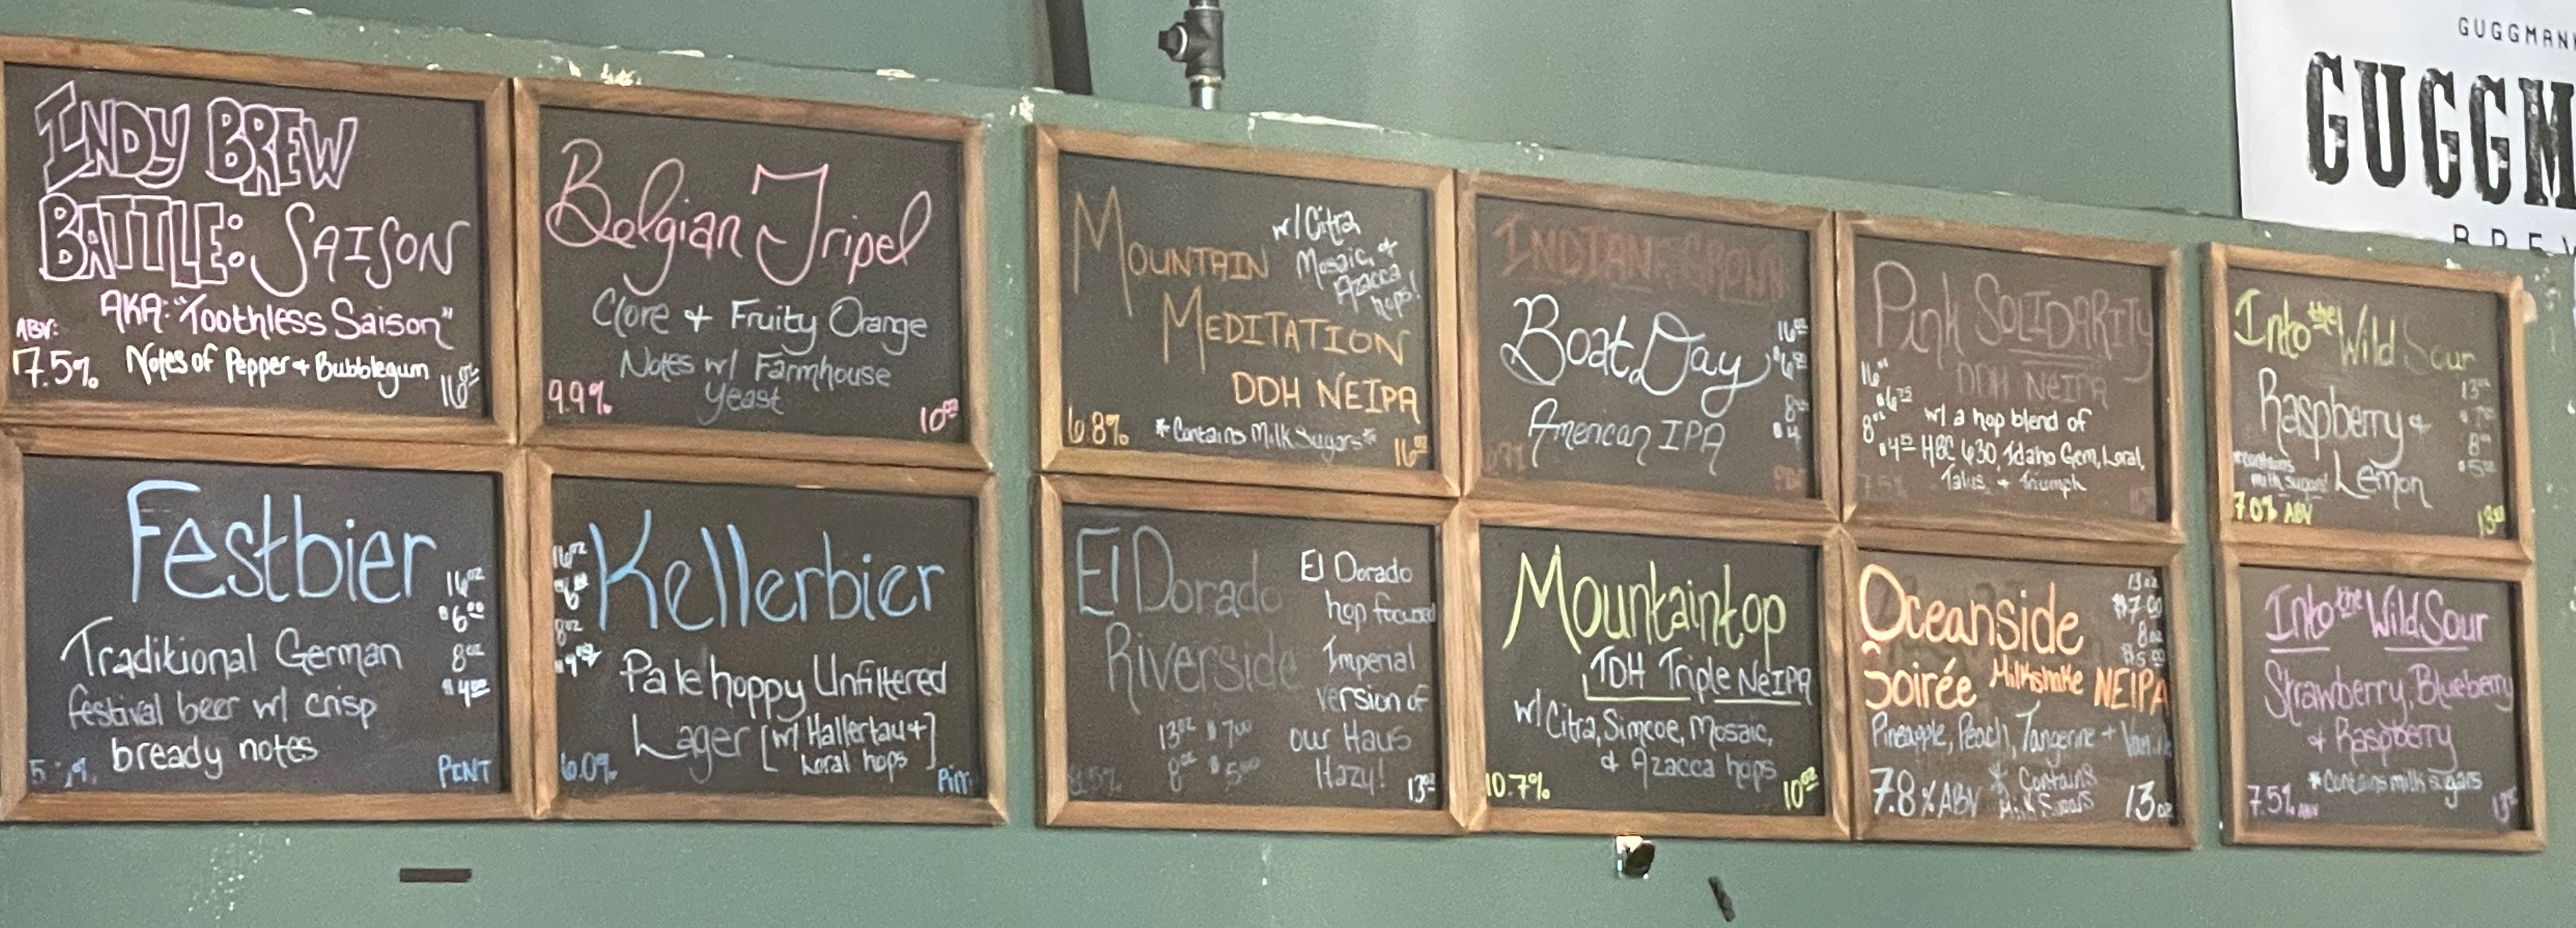 INDY BREW
BATTLE: SAISON
AKA: "Toothless Saison"
ABV:
7.5% Notes of Pepper + Bubblegum 16oz
Belgian Tripel
Clove + Fruity Orange
Notes w/ Farmhouse
Yeast
9.9% 10oz
MOUNTAIN
w/ Citra
Mosaic, +
Azacca
hops!
MEDITATION
DDH NEIPA
6.8% *Contains Milk Sugars* 16oz
INDIANA GROWN
Boat Day
American IPA
16oz
8oz
$4
Pink SOLIDARITY
DDH NEIPA
16oz
$6.75
8oz
$4
w/ a hop blend of
HBC 630, Idaho Gem, Loral,
Talus, + Triumph
Into the Wild Sour
Raspberry +
Lemon
13oz
8oz
*contains
milk sugars!
7.0% ABV 13oz
Festbier
Traditional German
festival beer w/ crisp
bready notes
16oz
$6.00
8oz
$4.00
PINT
Kellerbier
16oz
8oz
Pale hoppy Unfiltered
Lager [w/ Hallertau +]
Loral hops
6.0% Pint
El Dorado
Riverside
13oz $7.00
8oz $5.00
8.5%
El Dorado
hop focused
Imperial
version of
our Haus
Hazy!
13oz
Mountaintop
TDH Triple NEIPA
w/ Citra, Simcoe, Mosaic,
+ Azacca hops
10.7% 10oz
Oceanside
Soirée Milkshake NEIPA
13oz
$7.00
8oz
$5.00
Pineapple, Peach, Tangerine + Vanilla
7.8% ABV * Contains
Milk Sugars 13oz
Into the Wild Sour
Strawberry, Blueberry
+ Raspberry
*Contains milk sugars
7.5% ABV 13oz
GUGGMAN
GUGGM
BREW